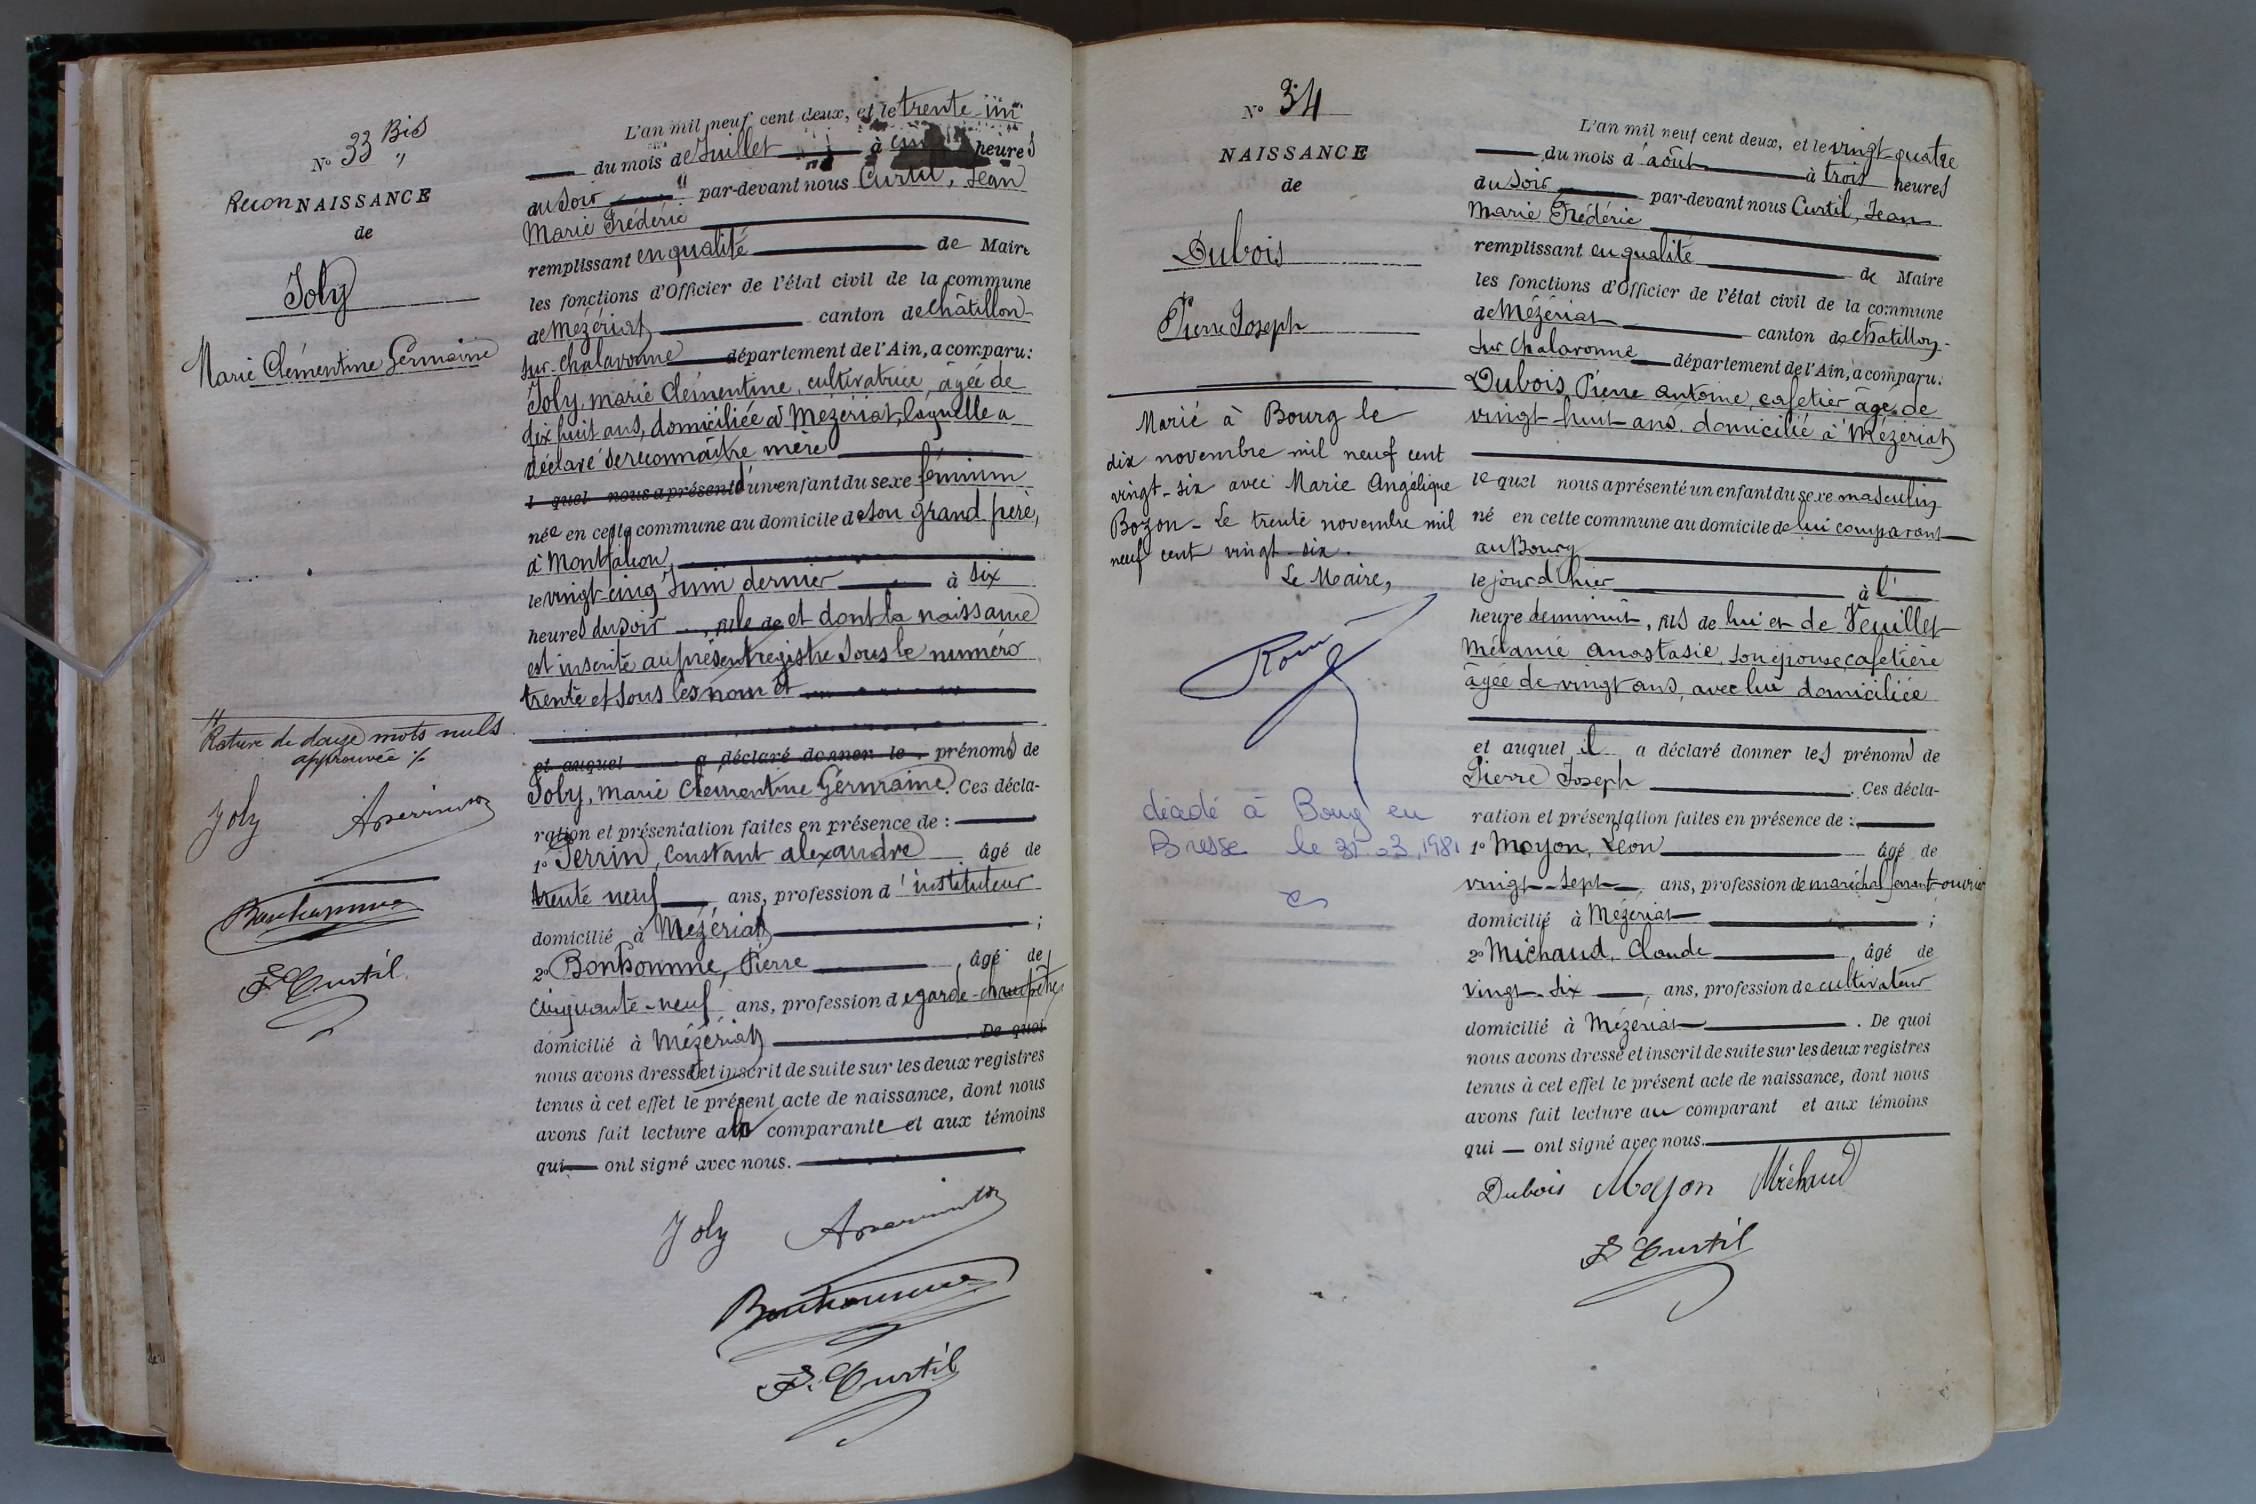 N° 33 Bis
Recon NAISSANCE
de
Joly
Marie Clémentine Germaine
Rature de douze mots nuls
approuvée
Joly
Bonhomme
F Curtil
L'an mil neuf cent deux, et le trente-un
du mois de Juillet à heures
du soir par-devant nous Curtil, Jean
Marie Frédéric
remplissant en qualité de Maire
les fonctions d'Officier de l'état civil de la commune
de Mézériat canton de Châtillon-
sur-Chalaronne département de l'Ain, a comparu:
Joly, marie Clémentine, cultivatrice, âgée de
dix huit ans, domiciliée à Mézériat, laquelle a
déclaré se reconnaître mère
l quel nous a présenté d'un enfant du sexe féminin
née en cette commune au domicile de son grand père,
à Montfalcon
le vingt-cinq Juin dernier à six
heures du soir, fille de et dont la naissance
est inscrite au présent registre sous le numéro
trente et sous les nom et
et auquel a déclaré donner le prénoms de
Joly, marie Clémentine Germaine. Ces décla-
ration et présentation faites en présence de :
1° Perrin, Constant alexandre âgé de
trente neuf ans, profession d'instituteur
domicilié à Mézériat ;
2° Bonhomme, Pierre, âgé de
cinquante-neuf ans, profession de garde-champêtre
domicilié à Mézériat De quoi
nous avons dressé et inscrit de suite sur les deux registres
tenus à cet effet le présent acte de naissance, dont nous
avons fait lecture à la comparante et aux témoins
qui ont signé avec nous.
Joly
Bonhomme
F. Curtil
N° 34
NAISSANCE
de
Dubois
Pierre Joseph
Marié à Bourg le
dix novembre mil neuf cent
vingt-six avec Marie Angélique
Bozon - Le trente novembre mil
neuf cent vingt-six.
Le Maire,
décédé à Bourg en
Bresse le 31.03.1981
L'an mil neuf cent deux, et le vingt-quatre
du mois d'août à trois heures
du soir par-devant nous Curtil, Jean
Marie Frédéric
remplissant en qualité de Maire
les fonctions d'Officier de l'état civil de la commune
de Mézériat canton de Châtillon-
sur Chalaronne département de l'Ain, a comparu:
Dubois, Pierre antoine, cafetier âgé de
vingt-huit ans, domicilié à Mézériat
lequel nous a présenté un enfant du sexe masculin
né en cette commune au domicile de lui comparant
au Bourg
le jour d'hier à l'
heure de minuit, fils de lui et de Veuillet
Mélanie anastasie, son épouse, cafetière
âgée de vingt ans, avec lui domiciliée
et auquel il a déclaré donner les prénoms de
Pierre Joseph. Ces décla-
ration et présentation faites en présence de :
1° Moyon, Léon âgé de
vingt-sept, ans, profession de maréchal ferrant-ouvrier
domicilié à Mézériat ;
2° Michaud, Claude âgé de
vingt-six, ans, profession de cultivateur
domicilié à Mézériat. De quoi
nous avons dressé et inscrit de suite sur les deux registres
tenus à cet effet le présent acte de naissance, dont nous
avons fait lecture au comparant et aux témoins
qui ont signé avec nous.
Dubois Moyon Michaud
F Curtil